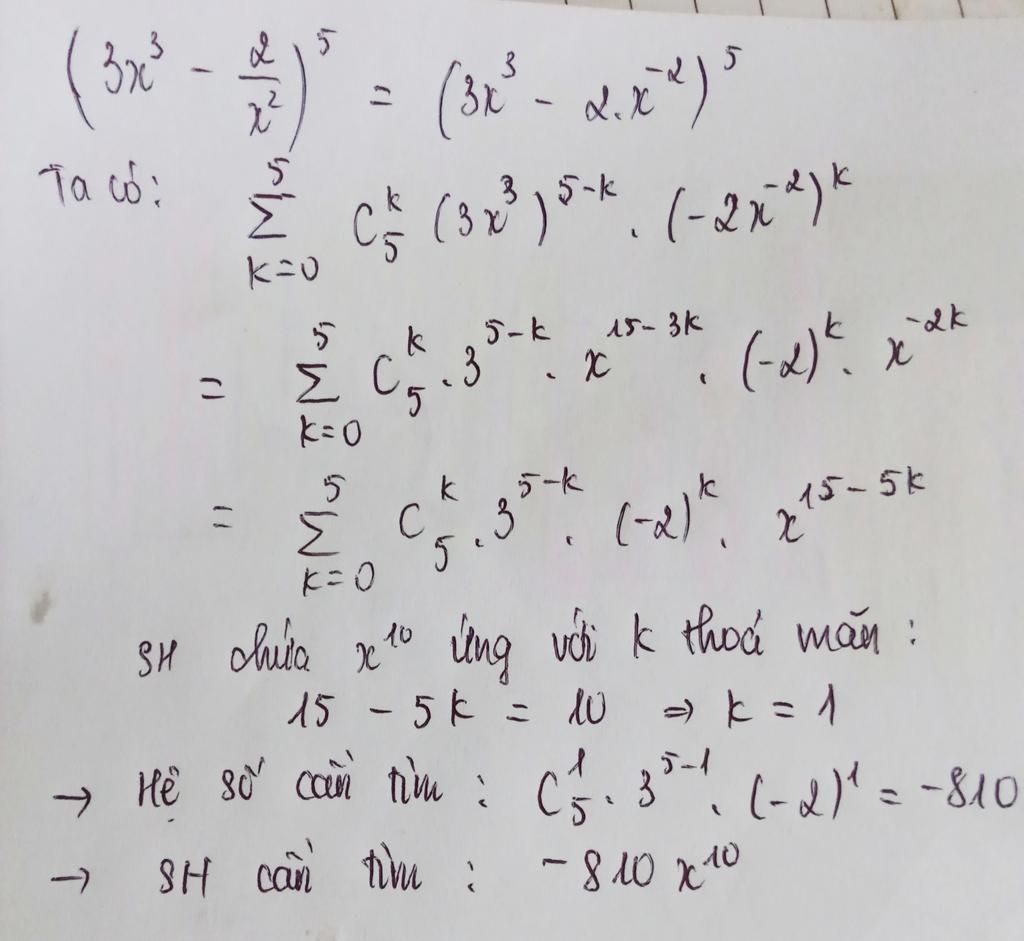 (3x³ - 2/x²)⁵ = (3x³ - 2.x⁻²)⁵
Ta có: ∑_{k=0}^{5} C₅ᵏ (3x³)⁵⁻ᵏ . (-2x⁻²)ᵏ
= ∑_{k=0}^{5} C₅ᵏ . 3⁵⁻ᵏ . x¹⁵⁻³ᵏ . (-2)ᵏ . x⁻²ᵏ
= ∑_{k=0}^{5} C₅ᵏ . 3⁵⁻ᵏ . (-2)ᵏ . x¹⁵⁻⁵ᵏ
SH chứa x¹⁰ ứng với k thoả mãn :
15 - 5k = 10 ⇒ k = 1
→ Hệ số cần tìm : C₅¹ . 3⁵⁻¹ . (-2)¹ = -810
→ SH cần tìm : -810 x¹⁰